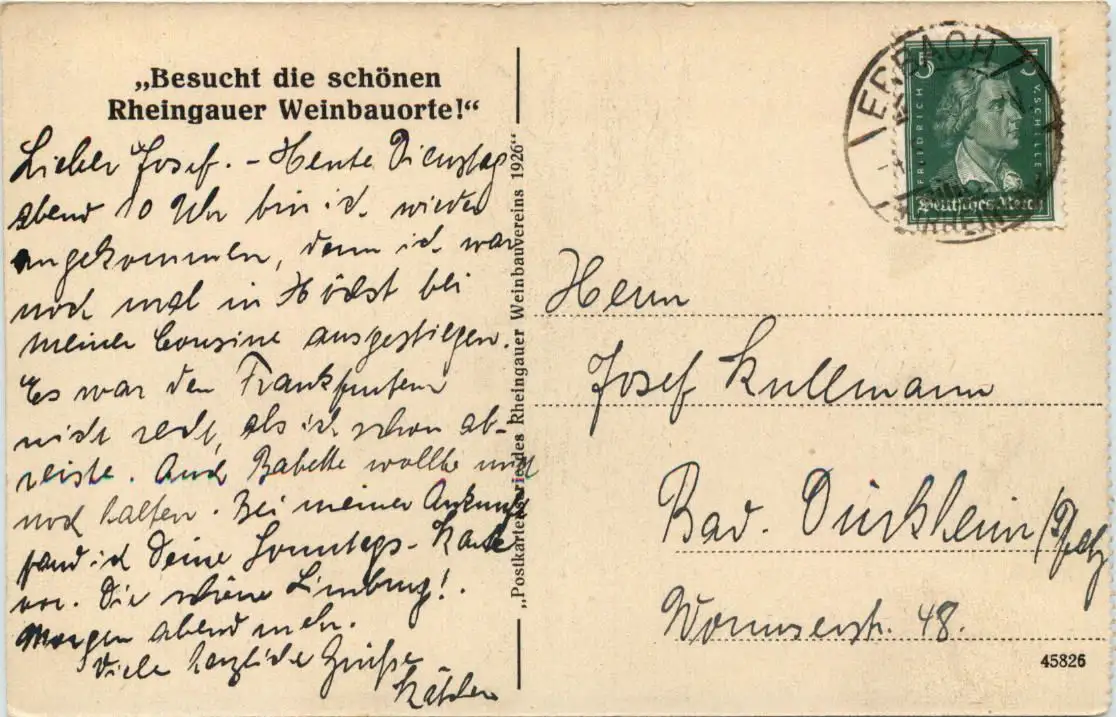 „Besucht die schönen
Rheingauer Weinbauorte!“
Lieber Josef. – Heute Dienstag
abend 10 Uhr bin ich wieder
angekommen, denn ich war
noch mal in Höchst bei
meiner Cousine ausgestiegen.
Es war den Frankfurtern
nicht recht, als ich schon ab-
reiste. Auch Babette wollte mich
noch halten. Bei meiner Ankunft
fand ich Deine Sonntags-Karte
vor. Die schöne Limburg!
Morgen abend mehr.
Viele herzliche Grüße
Käthchen
„Postkartenserie des Rheingauer Weinbauvereins 1926“
ERBACH
5 5
FRIEDRICH V. SCHILLER
Deutsches Reich
Herrn
Josef Kullmann
Bad. Dürkheim/Pfalz
Wormserstr. 48.
45826